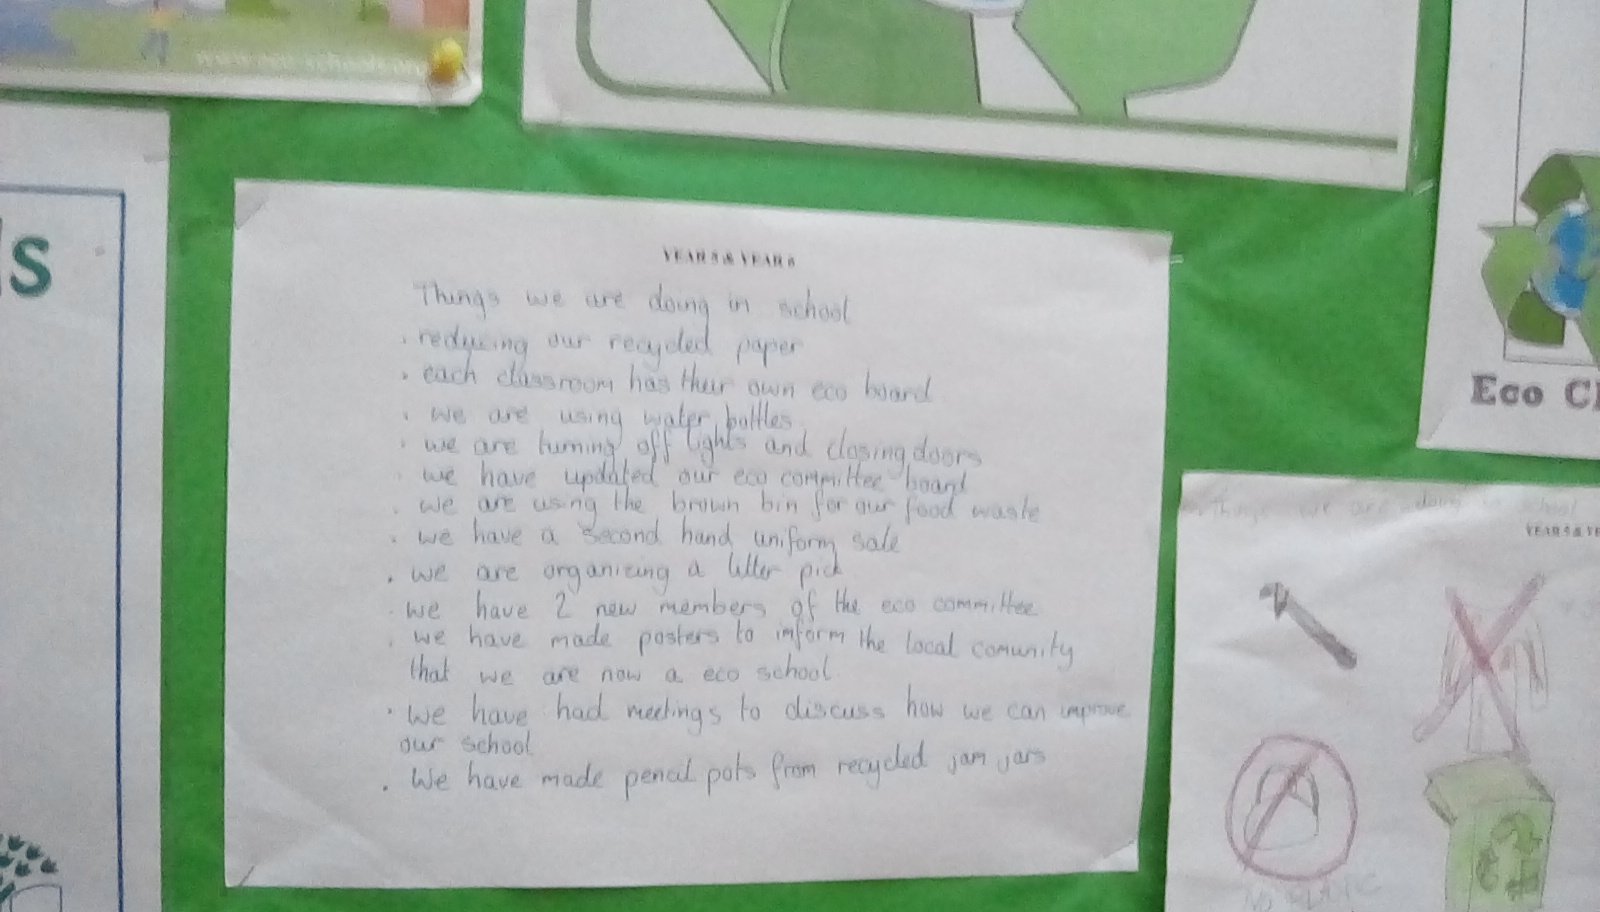 www.eco-schools.org
s
YEAR 5 & YEAR 6
Things we are doing in school
. reducing our recycled paper
. each classroom has their own eco board
. we are using water bottles
. we are turning off lights and closing doors
. we have updated our eco committee board
. we are using the brown bin for our food waste
. we have a second hand uniform sale
. we are organising a litter pick
. we have 2 new members of the eco committee
. we have made posters to inform the local comunity
that we are now a eco school
. We have had meetings to discuss how we can improve
our school
. We have made pencil pots from recycled jam jars
Eco
Things we are doing in school
YEAR 5 & YE
NO PLASTIC